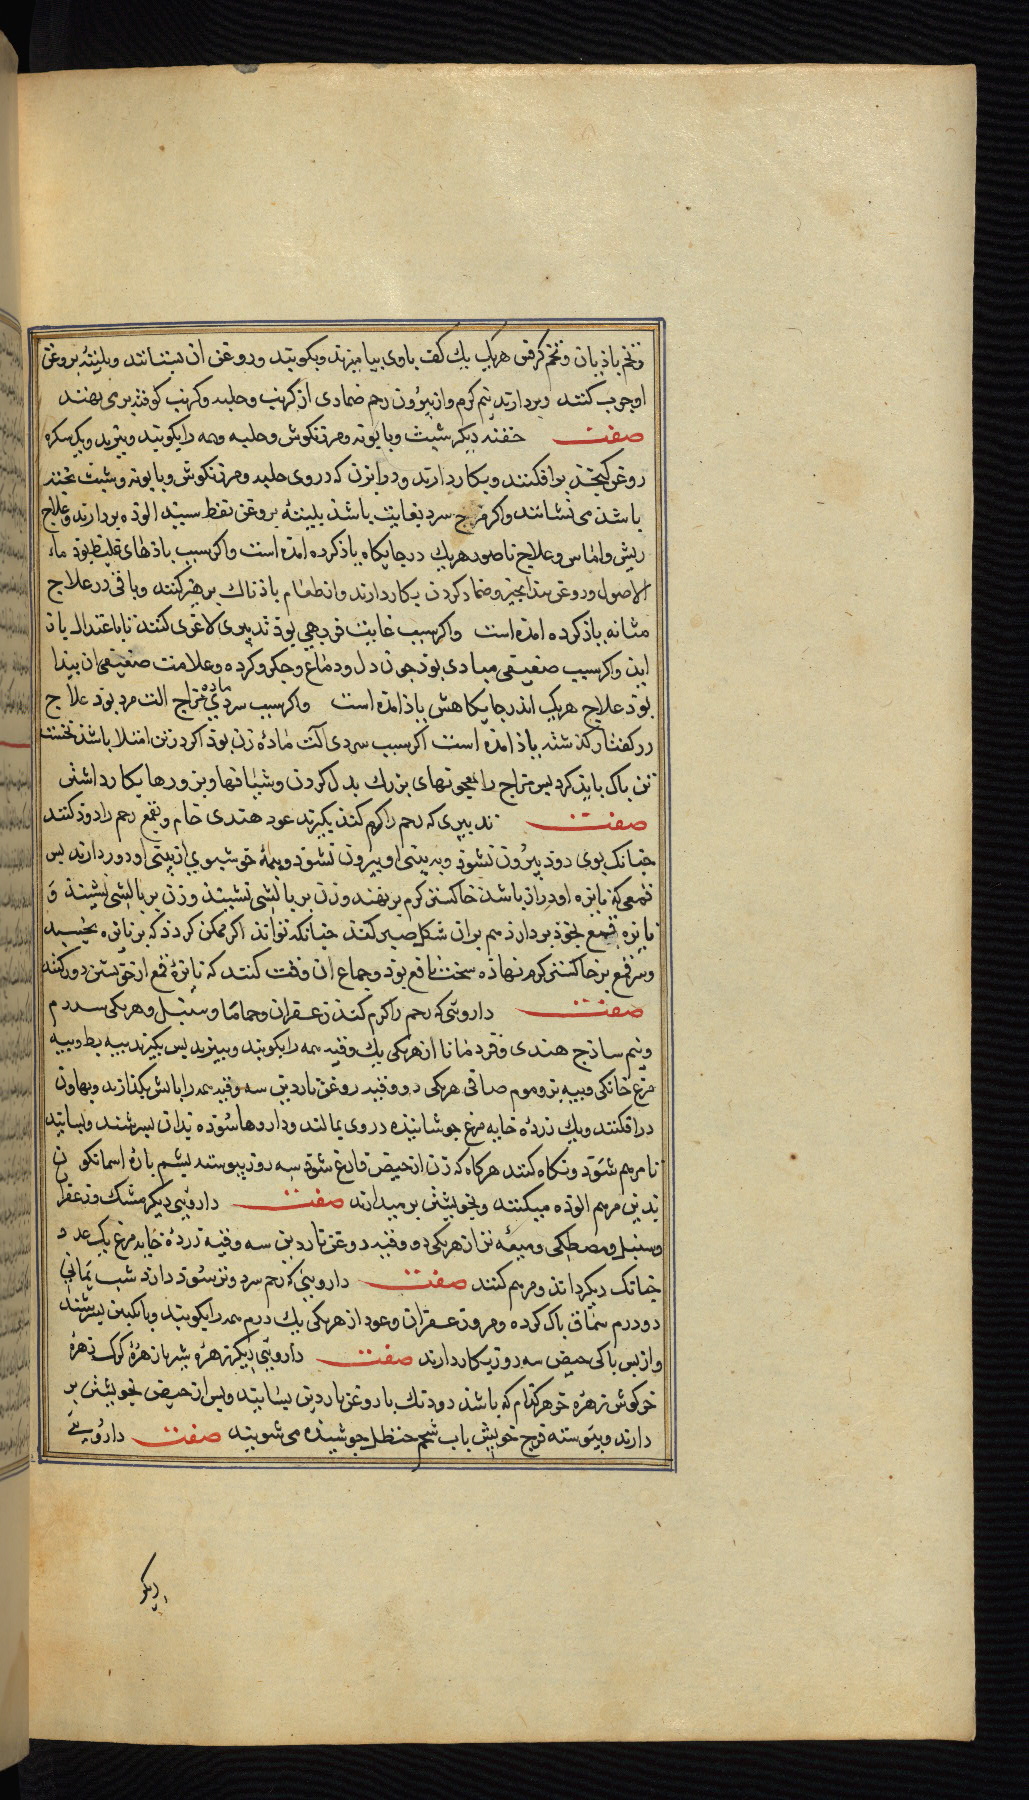 وتخم باذیان وتخم کرفس هریک یک کف باوی بیامیزند وبکوبند وروغن ان بستانند وبلیته بروغن
او چرب کنند وبردارند نیم کرم واز بیرون رحم ضمادی از کرنب وحلبه وکرنب کوفته برمی نهند
صفت حقنه دیکر شبت وبابونه ومرزنکوش وحلبه همه رابکوبند وبپزند ویک سکره
روغن کنجد برافکنند وبکار دارند ودرابزن که دروی حلبه ومرزنکوش وبابونه وشبت پخته
باشذ می نشانند واکر مزاج سرد بغایت باشذ بلیته بروغن نفط سپید الوذه بردارند وعلاج
ریش واماس وعلاج ناصور هریک درجایکاه باذ کرده امذه است واکر سبب باذهای غلیظ بوذ ماء
الاصول وروغن بیدانجیر وضماد کردن بکار دارند واز طعام باذناک پرهیز کنند وباقی در علاج
مثانه یاذ کرده امذه است واکر سبب غایت فربهی بوذ تدبیری لاغری کنند تا باعتدال باز
این واکر سبب ضعیفی مبادی بوذ چون دل ودماغ وجکر وکرده وعلامت ضعیفی ان پیدا
بوذ علاج هریک اندر جایکاهش یاذ امذه است واکر سبب سردی ماده مزاج الت مرد بوذ علاج
در کفتار کذشته یاذ امذه است اکر سبب سردی آلت ماده زن بوذ اکر در تن امتلا باشذ نخست
تن پاک بایذ کرد پس مزاج را بمعجونهای بزرک بدل کردن وشیافها وبزورها بکار داشتن
صفت تدبیری که رحم را کرم کند بکیرند عود هندی خام وبقمع رحم را دوذ کنند
چنانک بوی دوذ بیرون نشوذ وبه بینی او بیرون نشوذ وهمه خوشبوی از بینی او دور دارند پس
قمعی که نایزه او دراز باشذ خاکستر کرم برنهند وزن بر بالشی نشیند وزن بر بالشی نشیند و
نایزه قمع بخوذ بردارذ هم بران شکل صبر کند چنانکه تواند اکر ممکن کردذ که بر نایزه بخسبد
وسر قمع بر خاکستر کرم نهاذه سخت نافع بوذ وجماع ان وقت کنند که نایزه قمع از خویشتن دور کنند
صفت داروئی که رحم را کرم کند زعفران وحماما وسنبل وهریکی سه درم
ونیم ساذج هندی وقردمانا از هریکی یک وقیه همه رابکوبند وبپزند پس بکیرند پیه بط وپیه
مرغ خانکی وپیه بز وموم صافی هریکی دو وقیه روغن ناردین سه وقیه همه را باتش بکذازند وبهاون
درافکنند ویک زرده خایه مرغ جوشانیذه دروی بمالند وداروها سوذه بذان بسرشند وبسایند
تا مرهم شوذ ونکاه کنند هرکاه که زن از حیض فارغ شوذ سه روز پیوسته پشم پاره اسمانکون
بدین مرهم الوذه میکنند وبخویشتن برمیدارند صفت داروئی دیکر مشک وزعفران
وسنبل ومصطکی ومیعه تر از هریکی دو وقیه روغن ناردین سه وقیه زرده خایه مرغ یک عدد
چنانک دیکر داند ومرهم کنند صفت داروئی که رحم سرد وتر سوذ دارذ شب یمانی
دو درم سماق پاک کرده ومر وزعفران وعود از هریکی یک درم همه رابکوبند وبانکبین بسرشند
واز پس پاکی حیض سه روز بکار دارند صفت داروئی دیکر زهره شیر یا زهره کرک زهره
خرکوش زهره خر هرکدام که باشذ دو دنک با روغن ناردین بسایند وپس از حیض بخویشتن بر
دارند وپیوسته فرج خویش باب شحم حنظل جوشیذه می شویند صفت داروئی
دیکر